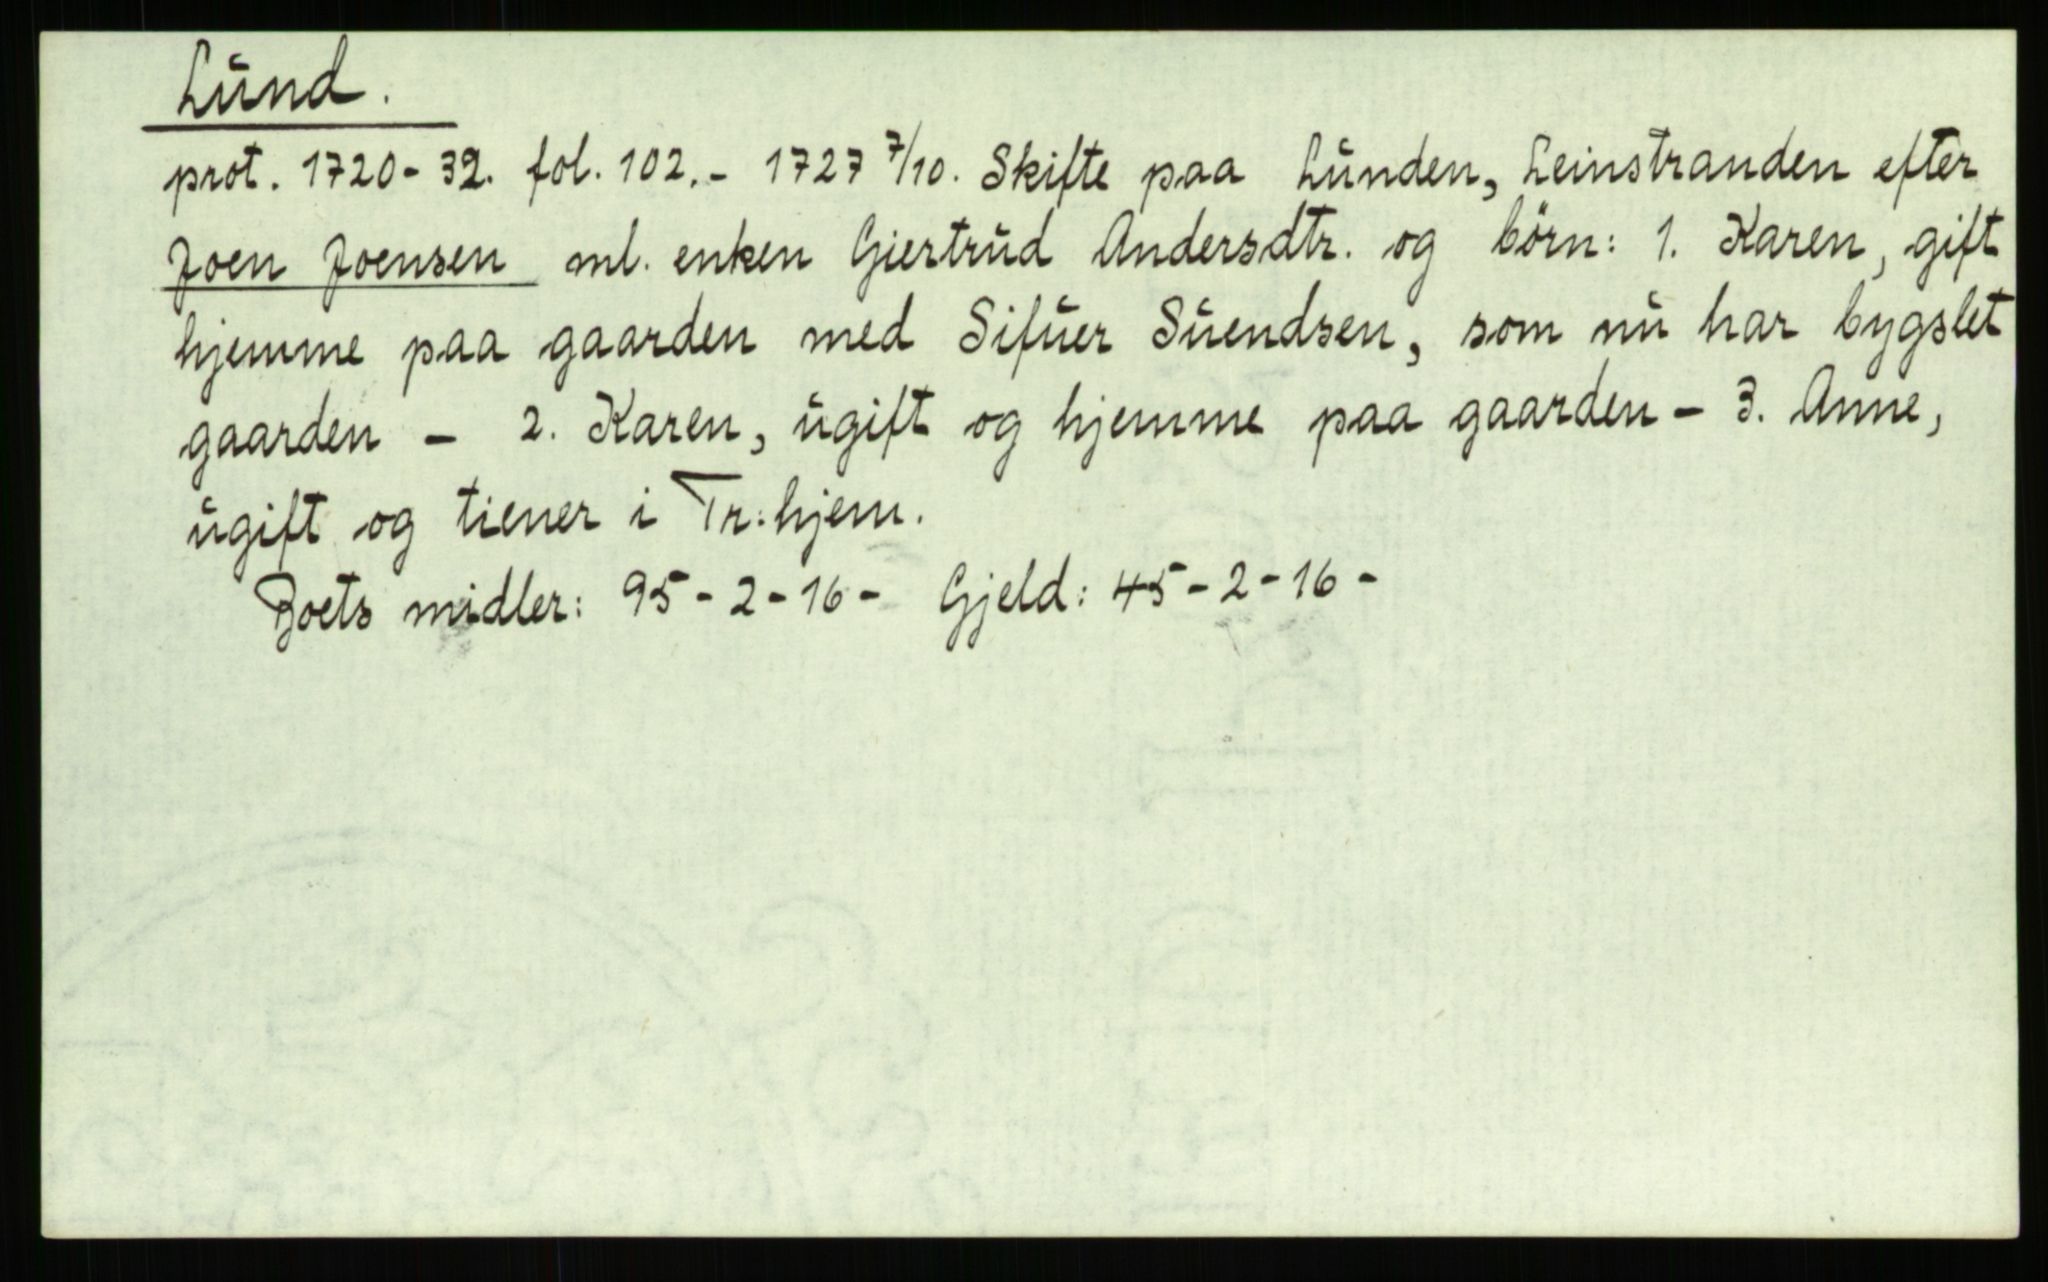 Lund.
prot. 1720-32. fol. 102.- 1727 7/10. Skifte paa Lunden, Leinstranden efter
Joen Joensen ml. enken Gjertrud Andersdtr. og børn: 1. Karen, gift
hjemme paa gaarden med Sifuer Suendsen, som nu har bygslet
gaarden - 2. Karen, ugift og hjemme paa gaarden - 3. Anne,
ugift og tiener i Tr.hjem.
Boets midler: 95-2-16- Gjeld: 45-2-16-